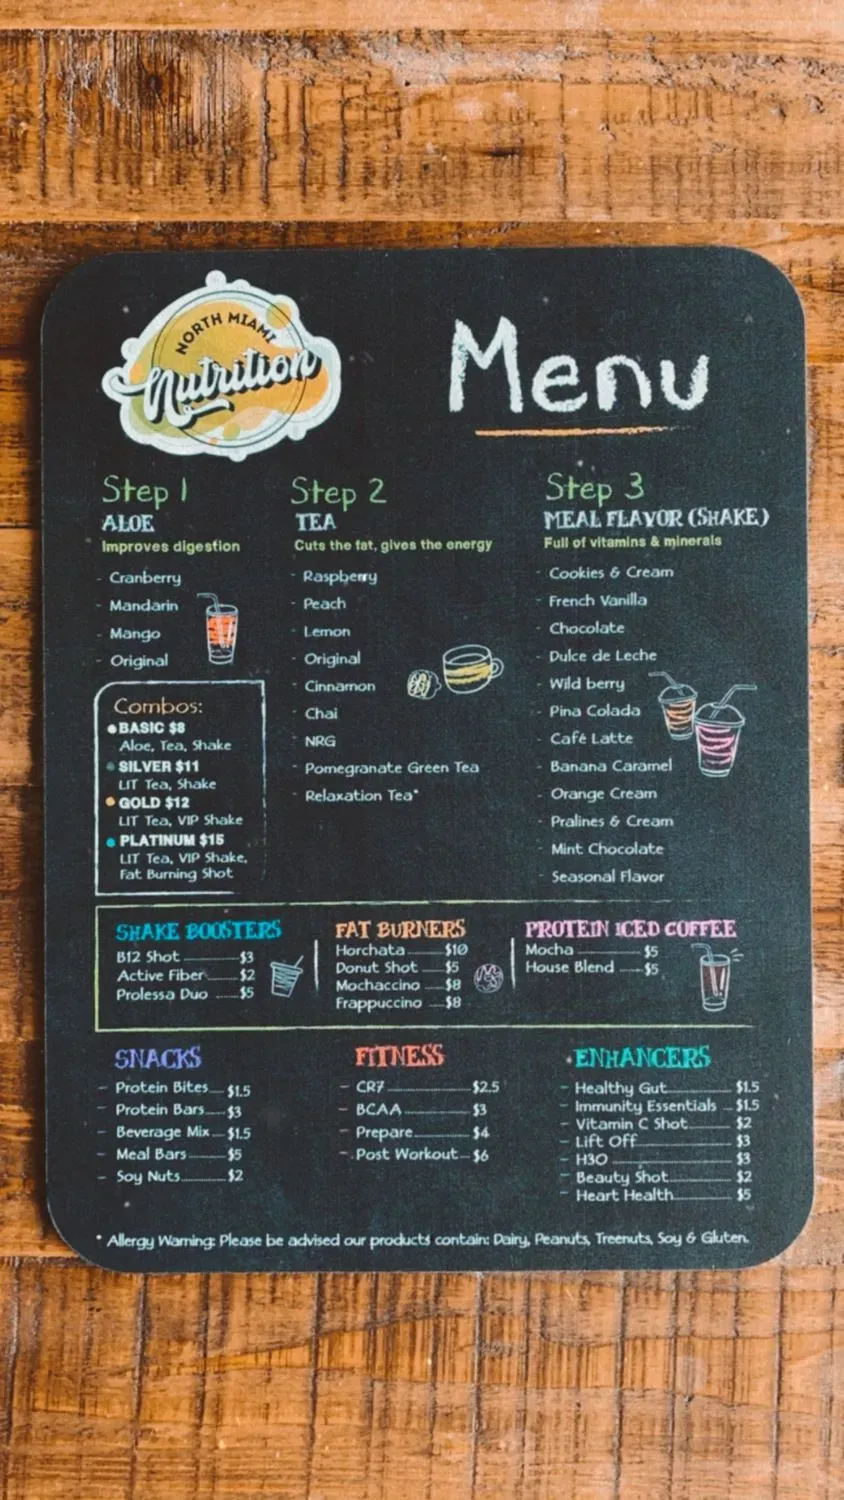 NORTH MIAMI
Nutrition
Menu
Step 1
ALOE
Improves digestion
- Cranberry
- Mandarin
- Mango
- Original
Combos:
BASIC $8
Aloe, Tea, Shake
SILVER $11
LIT Tea, Shake
GOLD $12
LIT Tea, VIP Shake
PLATINUM $15
LIT Tea, VIP Shake,
Fat Burning Shot
Step 2
TEA
Cuts the fat, gives the energy
- Raspberry
- Peach
- Lemon
- Original
- Cinnamon
- Chai
- NRG
- Pomegranate Green Tea
- Relaxation Tea*
Step 3
MEAL FLAVOR (SHAKE)
Full of vitamins & minerals
- Cookies & Cream
- French Vanilla
- Chocolate
- Dulce de Leche
- Wild berry
- Pina Colada
- Café Latte
- Banana Caramel
- Orange Cream
- Pralines & Cream
- Mint Chocolate
- Seasonal Flavor
SHAKE BOOSTERS
B12 Shot $3
Active Fiber $2
Prolessa Duo $5
FAT BURNERS
Horchata $10
Donut Shot $5
Mochaccino $8
Frappuccino $8
PROTEIN ICED COFFEE
Mocha $5
House Blend $5
SNACKS
- Protein Bites $1.5
- Protein Bars $3
- Beverage Mix $1.5
- Meal Bars $5
- Soy Nuts $2
FITNESS
- CR7 $2.5
- BCAA $3
- Prepare $4
- Post Workout $6
ENHANCERS
- Healthy Gut $1.5
- Immunity Essentials $1.5
- Vitamin C Shot $2
- Lift Off $3
- H3O $3
- Beauty Shot $2
- Heart Health $5
* Allergy Warning: Please be advised our products contain: Dairy, Peanuts, Treenuts, Soy & Gluten.